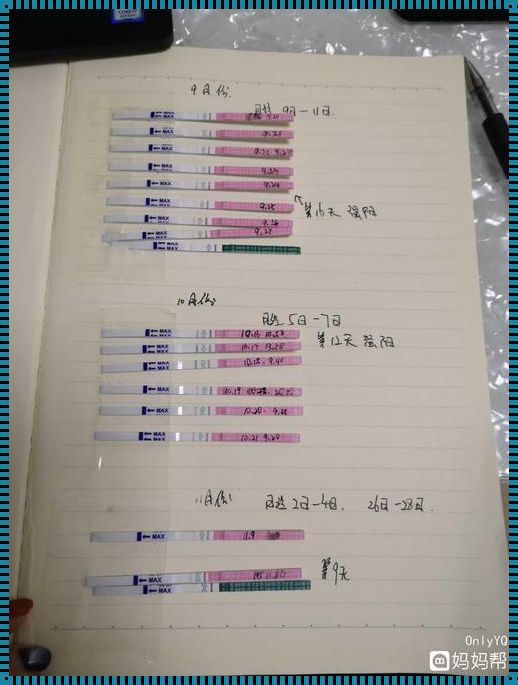 9月份.
月经 9日—11日.
MAX
MAX 9.21
MAX
MAX 9.23
MAX 9.24
MAX 9.25
第16天 强阳
MAX 9.26
MAX 9.27
MAX
10月份
月经 5日—7日
MAX
第12天 强阳
MAX 10.17 13.58
MAX 10.18. 9.40
MAX 10.19
MAX 10.20. 9.25
MAX 10.21 9.20
11月份
月经 2日—4日. 26日—28日.
MAX 11.9
第9天
MAX
MAX
OnlyYQ
妈妈帮